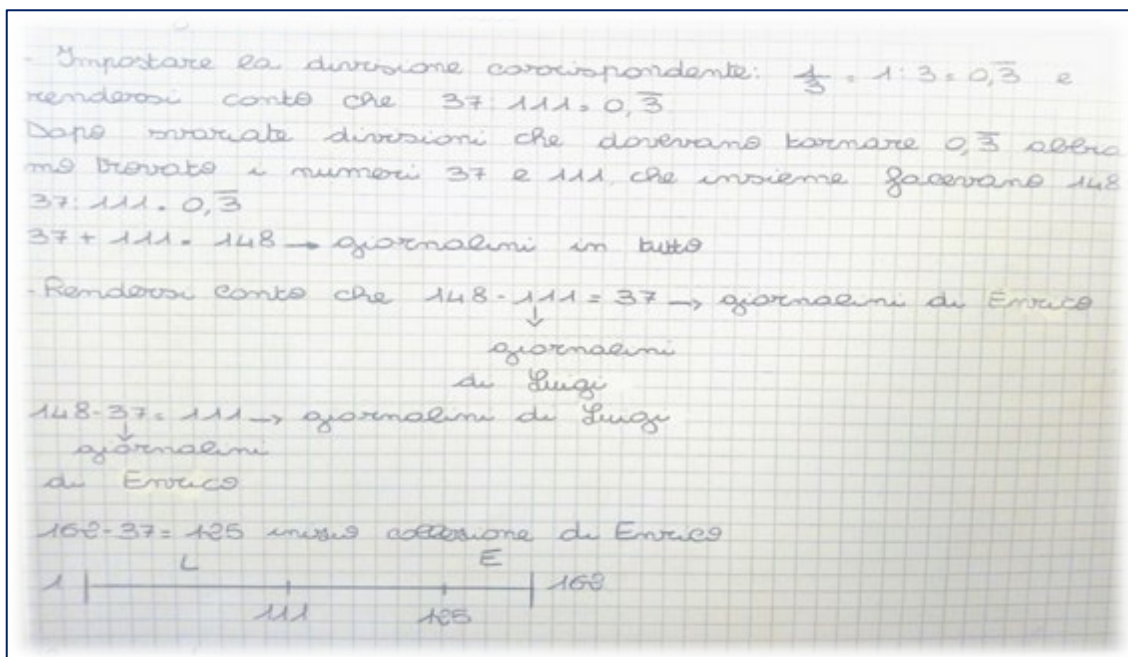 - Impostare la divisione corrispondente: 1/3 = 1:3 = 0,3̅ e
rendersi conto che 37:111 = 0,3̅
Dopo svariate divisioni che dovevano tornare 0,3̅ abbia
mo trovato i numeri 37 e 111 che insieme facevano 148
37:111 = 0,3̅
37 + 111 = 148 → giornalini in tutto
- Rendersi conto che 148 - 111 = 37 → giornalini di Enrico
↓
giornalini
di Luigi
148 - 37 = 111 → giornalini di Luigi
↓
giornalini
di Enrico
162 - 37 = 125 inizio collezione di Enrico
L E
1 162
111 125